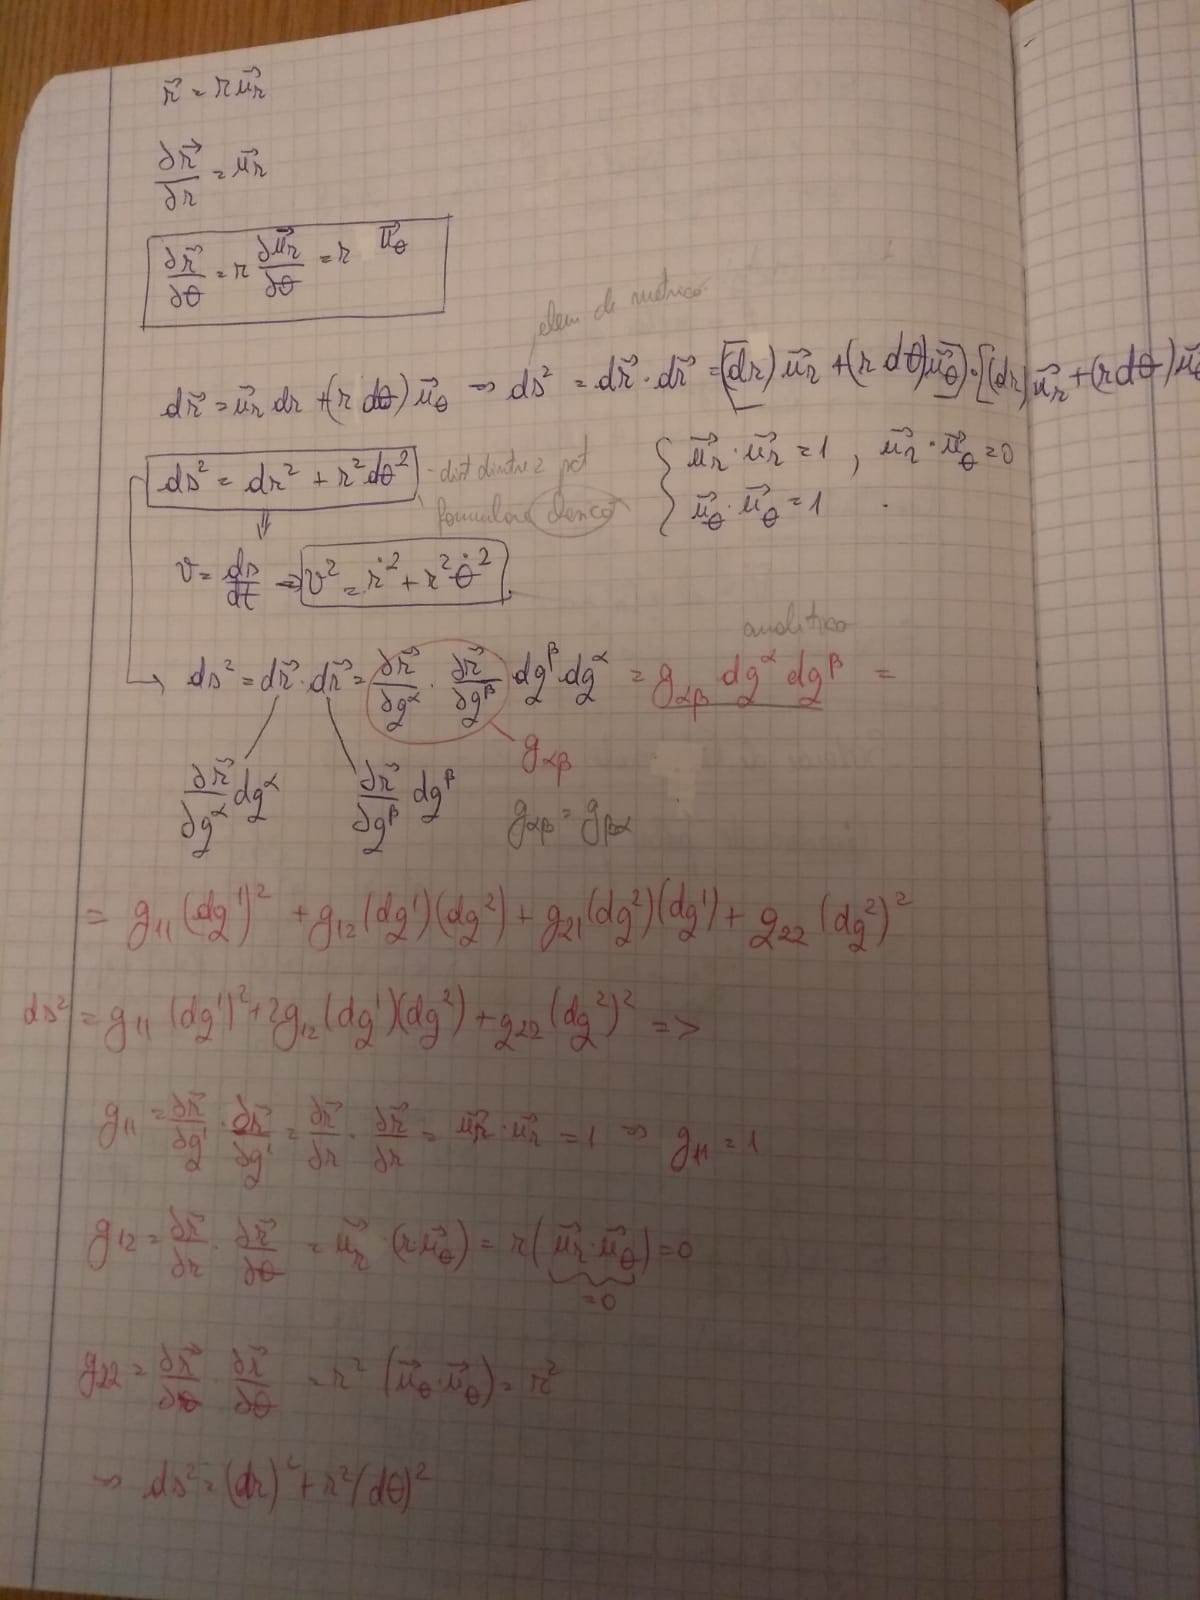 r⃗ = r u⃗_r
∂r⃗/∂r = u⃗_r
∂r⃗/∂θ = r ∂u⃗_r/∂θ = r u⃗_θ
elem de metrica
dr⃗ = u⃗_r dr + (r dθ) u⃗_θ ⇒ ds² = dr⃗ · dr⃗ = [(dr) u⃗_r + (r dθ) u⃗_θ] · [(dr) u⃗_r + (r dθ) u⃗_θ
ds² = dr² + r² dθ² - dist dintre 2 pct
u⃗_r · u⃗_r = 1 , u⃗_r · u⃗_θ = 0
u⃗_θ · u⃗_θ = 1
v = ds/dt ⇒ v² = ṙ² + r² θ̇²
analitica
ds² = dr⃗ · dr⃗ = ∂r⃗/∂q^α · ∂r⃗/∂q^β dq^β dq^α = g_αβ dq^α dq^β =
g_αβ
∂r⃗/∂q^α dq^α ∂r⃗/∂q^β dq^β g_αβ = g_βα
= g₁₁ (dq¹)² + g₁₂ (dq¹)(dq²) + g₂₁ (dq²)(dq¹) + g₂₂ (dq²)²
ds² = g₁₁ (dq¹)² + 2g₁₂ (dq¹)(dq²) + g₂₂ (dq²)² =>
g₁₁ = ∂r⃗/∂q¹ · ∂r⃗/∂q¹ = ∂r⃗/∂r · ∂r⃗/∂r = u⃗_r · u⃗_r = 1 ⇒ g₁₁ = 1
g₁₂ = ∂r⃗/∂r · ∂r⃗/∂θ = u⃗_r · (r u⃗_θ) = r (u⃗_r · u⃗_θ) = 0
= 0
g₂₂ = ∂r⃗/∂θ · ∂r⃗/∂θ = r² (u⃗_θ · u⃗_θ) = r²
⇒ ds² = (dr)² + r² (dθ)²